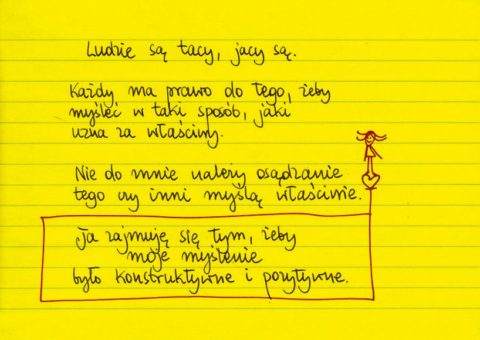 Ludzie są tacy, jacy są.
Każdy ma prawo do tego, żeby
myśleć w taki sposób, jaki
uzna za właściwy.
Nie do mnie należy osądzanie
tego czy inni myślą właściwie.
Ja zajmuję się tym, żeby
moje myślenie
było konstruktywne i pozytywne.